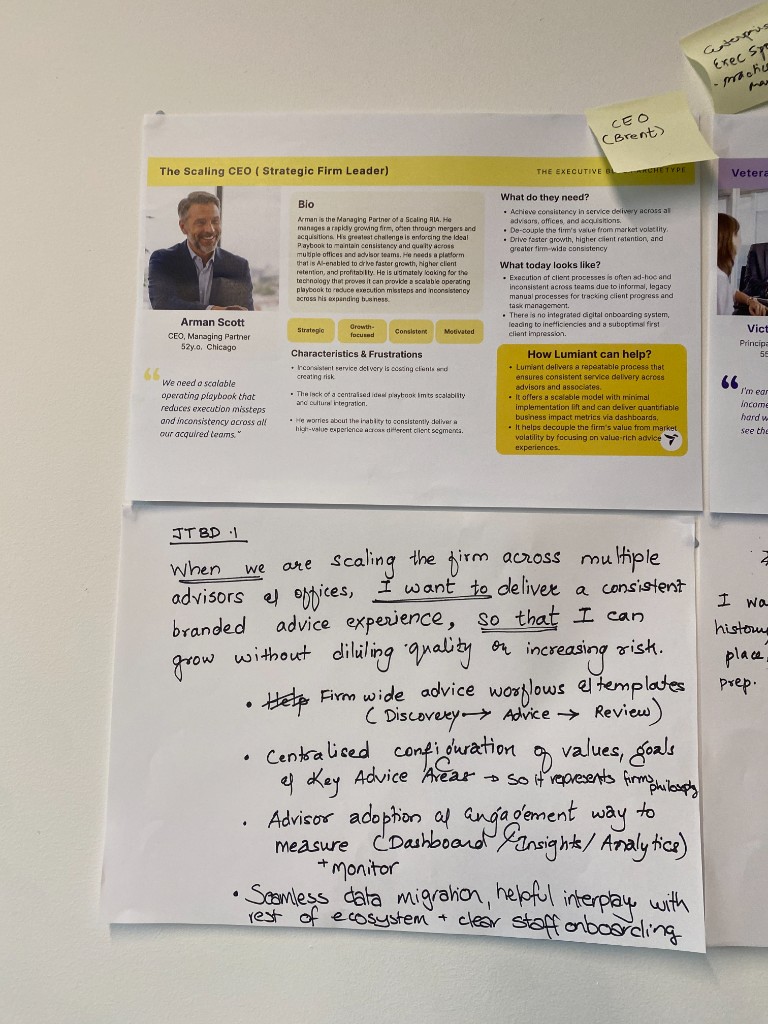 enterprise
Exec Sp
CEO
(Brent)
The Scaling CEO ( Strategic Firm Leader)
THE EXECUTIVE ARCHETYPE
Arman Scott
CEO, Managing Partner
52y.o. Chicago
“
We need a scalable
operating playbook that
reduces execution missteps
and inconsistency across all
our acquired teams."
Bio
Arman is the Managing Partner of a Scaling RIA. He
manages a rapidly growing firm, often through mergers and
acquisitions. His greatest challenge is enforcing the Ideal
Playbook to maintain consistency and quality across
multiple offices and advisor teams. He needs a platform
that is AI-enabled to drive faster growth, higher client
retention, and profitability. He is ultimately looking for the
technology that proves it can provide a scalable operating
playbook to reduce execution missteps and inconsistency
across his expanding business.
Strategic
Growth-
focused
Consistent
Motivated
Characteristics & Frustrations
• Inconsistent service delivery is costing clients and
creating risk.
• The lack of a centralised ideal playbook limits scalability
and cultural integration.
• He worries about the inability to consistently deliver a
high-value experience across different client segments.
What do they need?
• Achieve consistency in service delivery across all
advisors, offices, and acquisitions.
• De-couple the firm's value from market volatility.
• Drive faster growth, higher client retention, and
greater firm-wide consistency
What today looks like?
• Execution of client processes is often ad-hoc and
inconsistent across teams due to informal, legacy
manual processes for tracking client progress and
task management.
• There is no integrated digital onboarding system,
leading to inefficiencies and a suboptimal first
client impression.
How Lumiant can help?
• Lumiant delivers a repeatable process that
ensures consistent service delivery across
advisors and associates.
• It offers a scalable model with minimal
implementation lift and can deliver quantifiable
business impact metrics via dashboards.
• It helps decouple the firm's value from market
volatility by focusing on value-rich advice
experiences.
Vetera
Vict
Principa
“
I'm ear
income
hard w
see the
JTBD .1
When we are scaling the firm across multiple
advisors & offices, I want to deliver a consistent
branded advice experience, so that I can
grow without diluling quality or increasing risk.
• Help Firm wide advice worflows & templates
( Discovery → Advice → Review )
• Centralised configuration of values, goals
& Key Advice Areas → so it represents firms philosophy
• Advisor adoption & engagement way to
measure (Dashboard / Insights / Analytics)
+ monitor
• Seamless data migration, helpful interplay with
rest of ecosystem + clear staff onboarding
I wa
history
place,
prep.